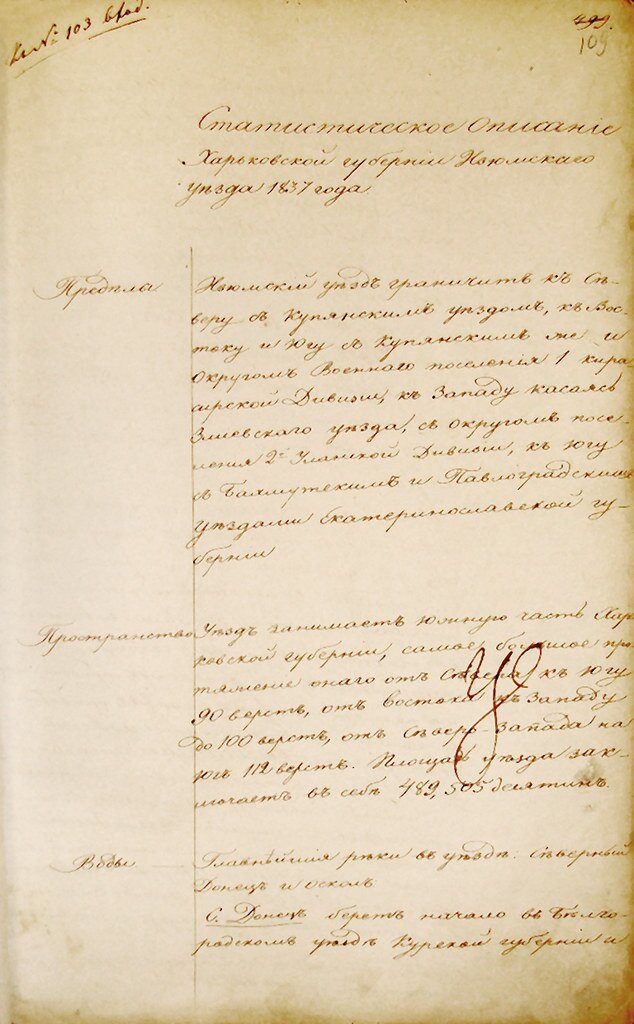 Къ № 103 вход.
499.
109
Статистическое описаніе
Харьковской губерніи Изюмскаго
уѣзда 1837 года.
Предѣлы
Изюмскій уѣздъ граничитъ къ Сѣ-
веру съ Купянскимъ уѣздомъ, къ Вос-
току и Югу съ Купянскимъ же и
Округомъ Военнаго поселенія 1 кира-
сирской Дивизіи, къ Западу касаясь
Зміевскаго уѣзда, съ округомъ посе-
ленія 2й Уланской Дивизіи, къ Югу
съ Бахмутскимъ и Павлоградскимъ
уѣздами Екатеринославской гу-
берніи
Пространство
Уѣздъ занимаетъ южную часть Харь-
ковской губерніи, самое большое про-
тяженіе онаго отъ Сѣвера къ Югу
90 верстъ, отъ востока къ Западу
до 100 верстъ, отъ Сѣверо-Запада на
Югъ 112 верстъ. Площадь уѣзда зак-
лючаетъ въ себѣ 489,505 десятинъ.
Воды
Главнѣйшія рѣки въ уѣздѣ: Сѣверный
Донецъ и Осколъ
С. Донецъ беретъ начало въ Бѣлго-
радскомъ уѣздѣ Курской губерніи и